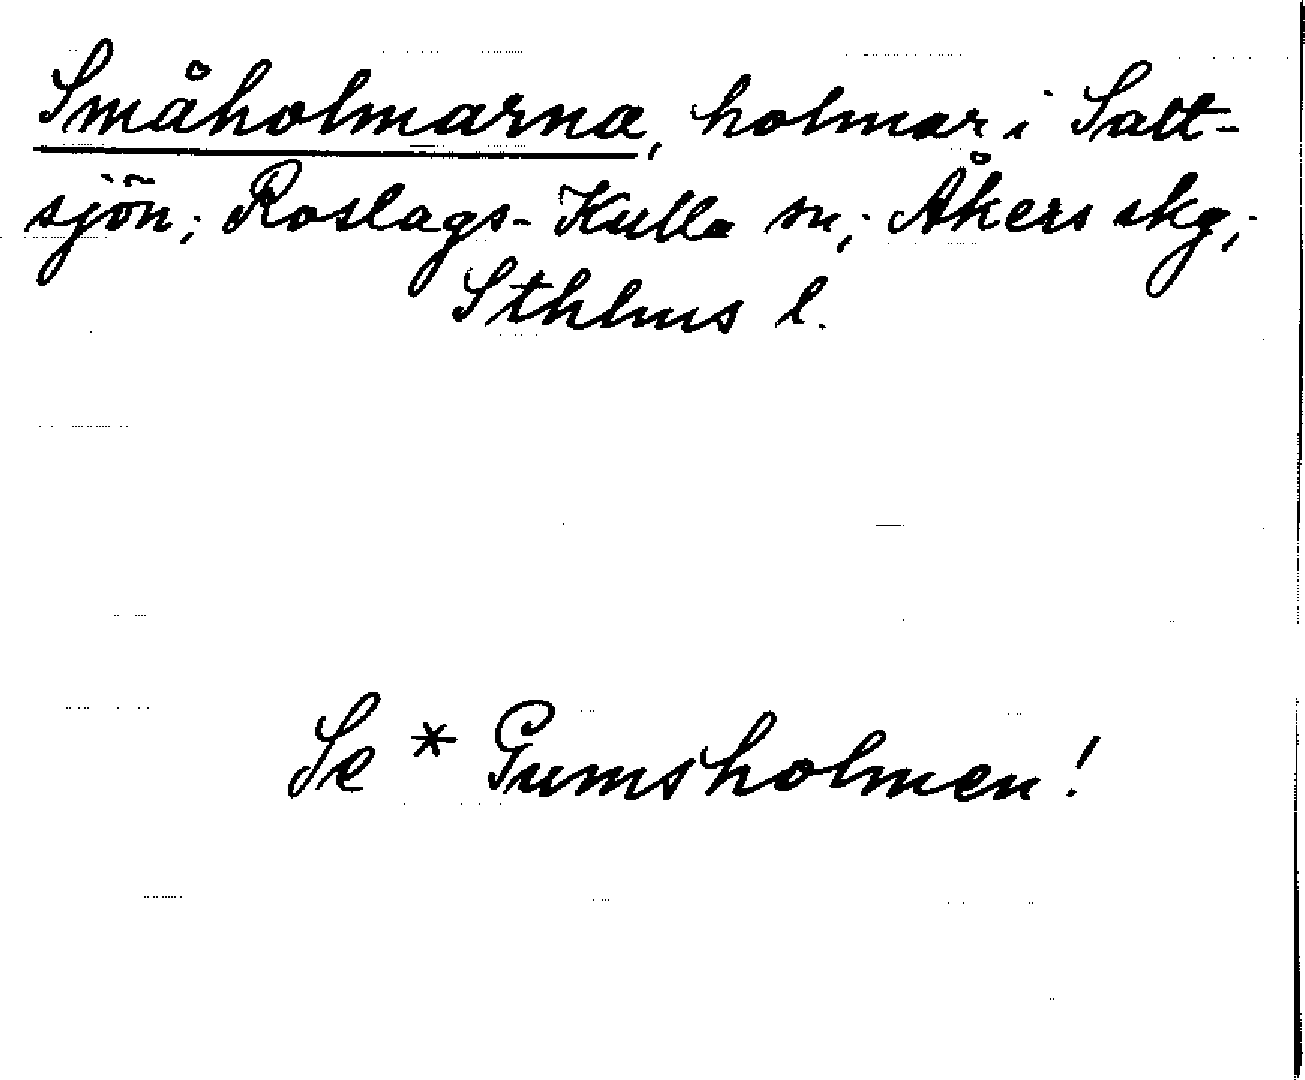 Småholmarna, holmar i Salt-
sjön; Roslags-Kulla sn; Åkers skg;
Sthlms l.
Se * Gumsholmen!